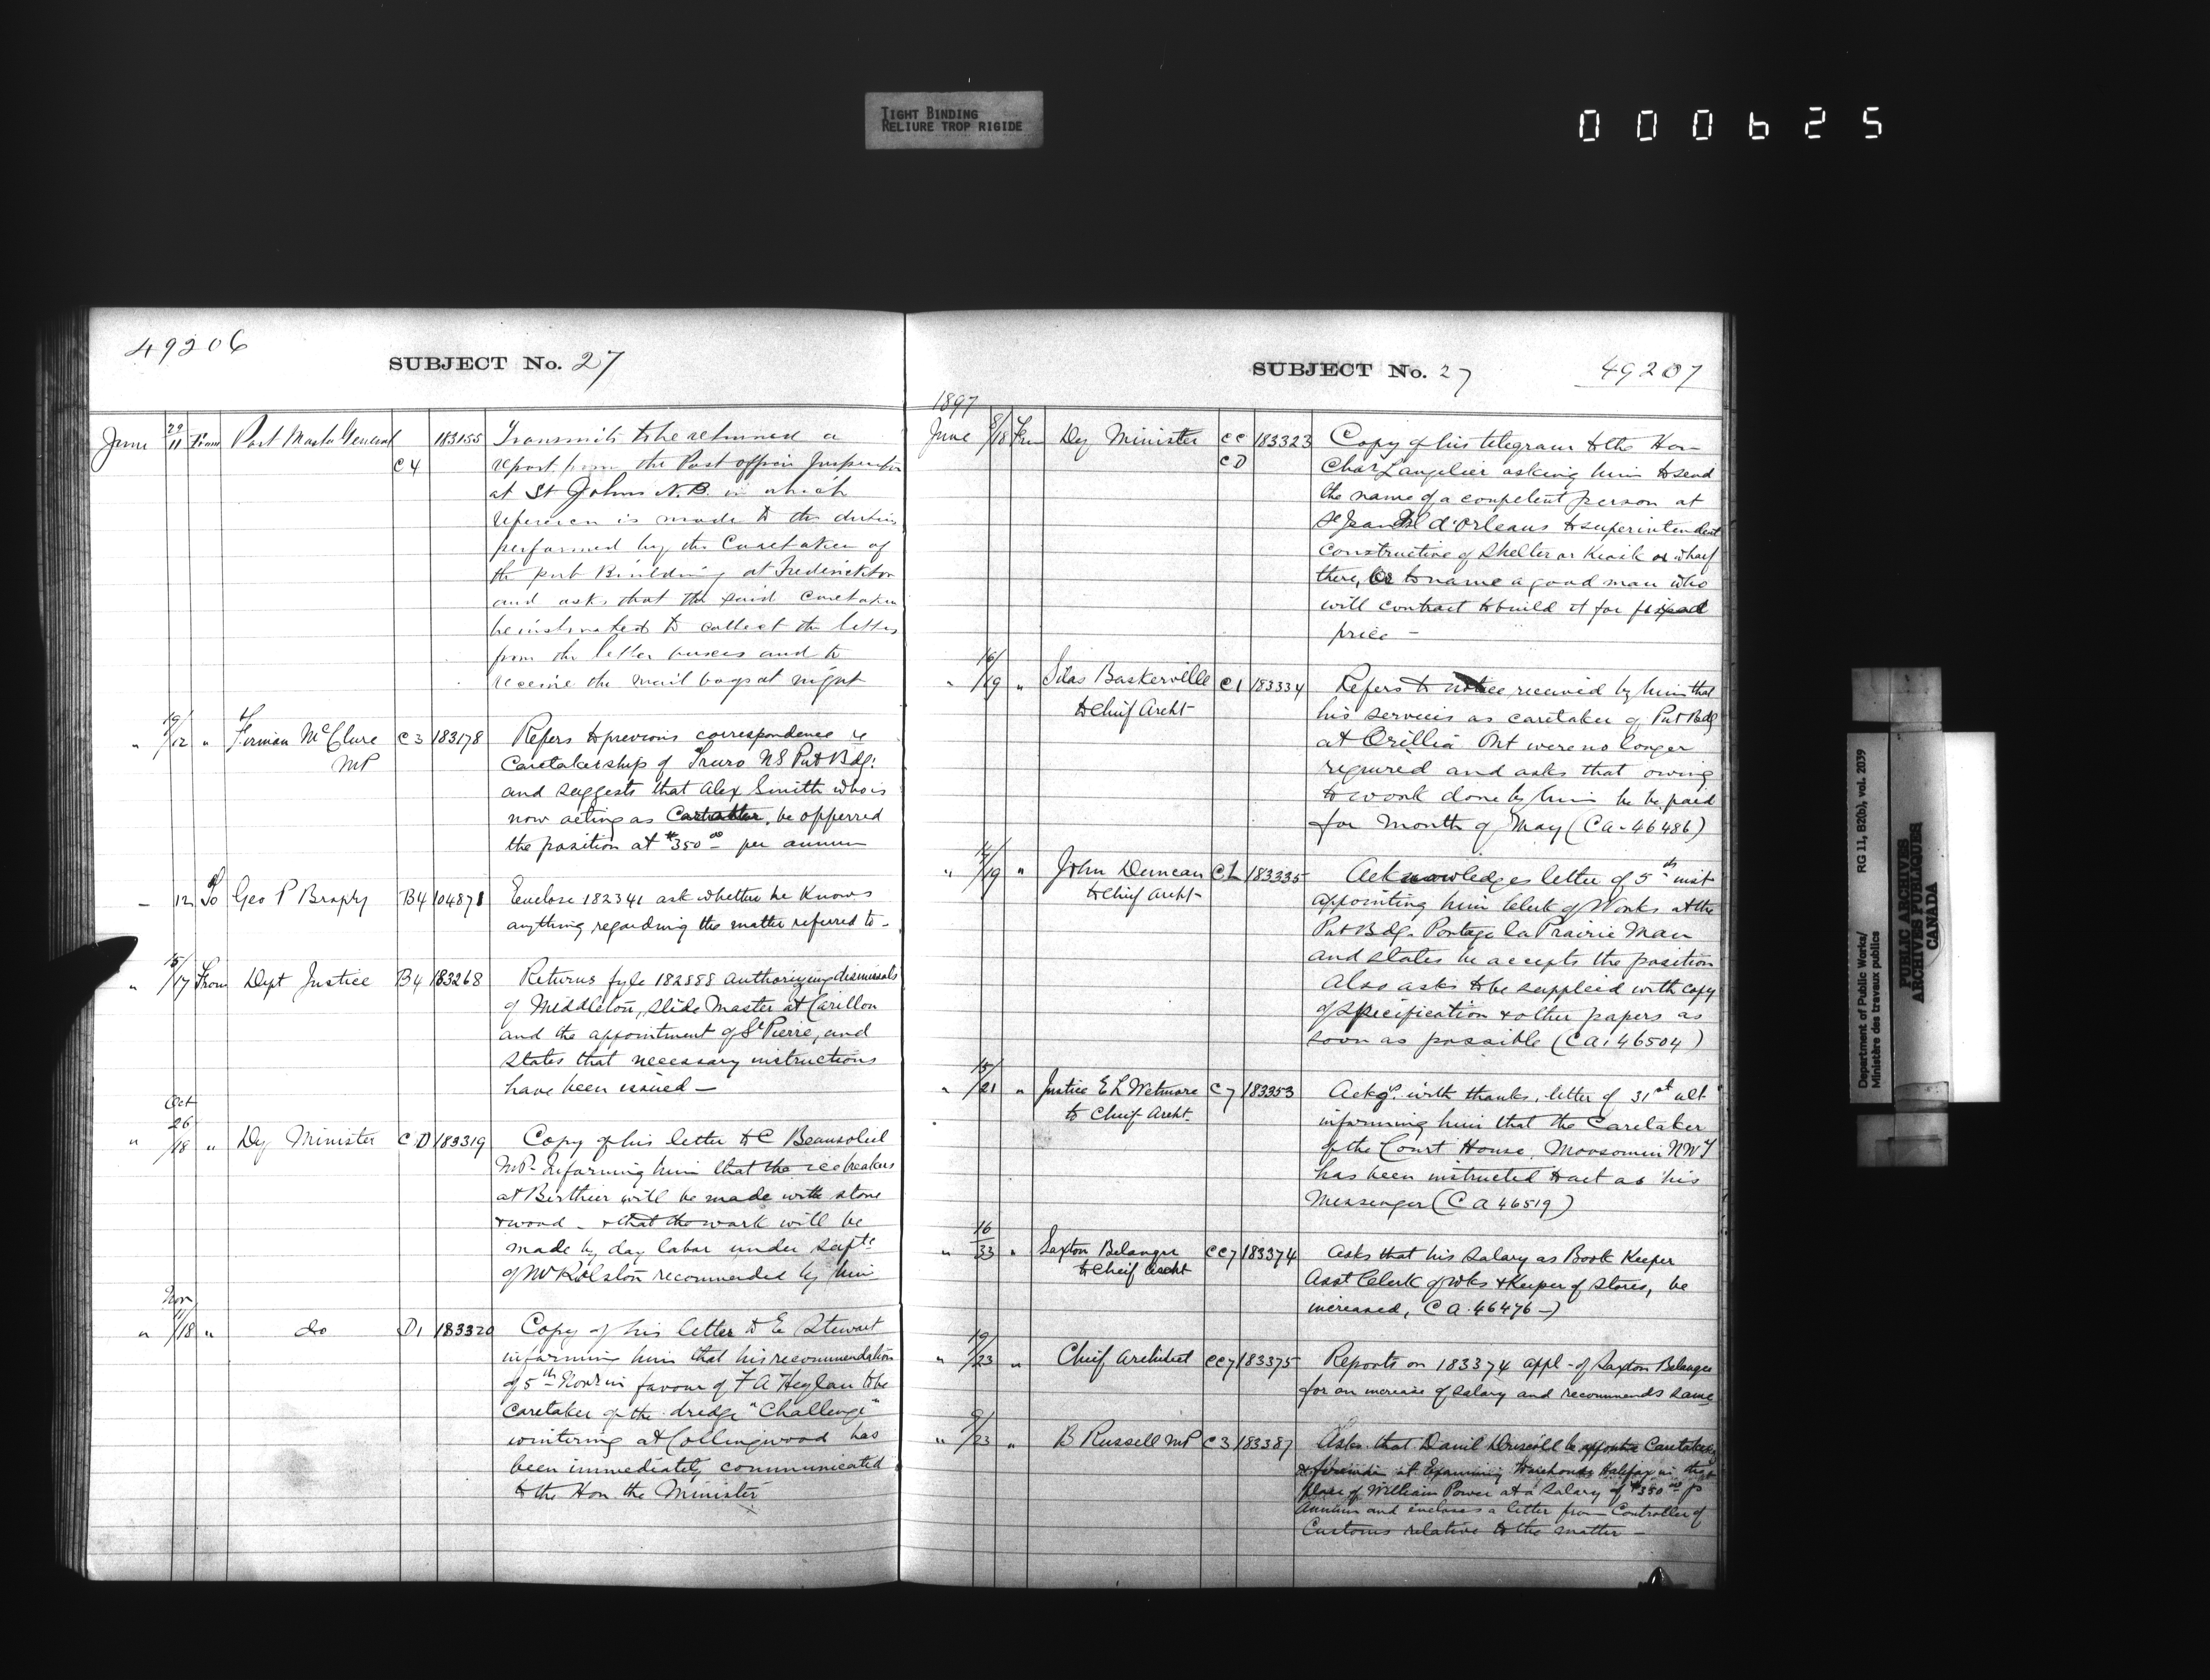 TIGHT BINDING
RELIURE TROP RIGIDE
000625
49206
SUBJECT No. 27
June 29/11 From Post Master General C4 183155 Transmits to be returned a
report from the Post office Inspector
at St Johns N.B. in which
reference is made to the duties
performed by the Caretaker of
the pub Building at Fredericton
and asks that the said Caretaker
be instructed to collect the letters
from the letter boxes and to
receive the mail bags at night
" 10/12 " Firman McClure MP C3 183178 Refers to previous correspondence re
Caretakership of Truro NS Put Bdg:
and suggests that Alex Smith who is
now acting as Caretaker, be opperred
the position at $350 00 per annum
12 To Geo P Brophy B4 104871 Enclose 182341 ask whether he knows
anything regarding the matter referred to -
" 15/17 From Dept Justice B4 183268 Returns fyle 182888 authorizing dismissals
of Middleton, Slide Master at Carillon
and the appointment of St Pierre, and
states that necessary instructions
have been issued —
" Oct 26/18 " Dy Minister CD 183319 Copy of his letter to C Beausoliel
MP- Informing him that the ice breakers
at Berthier will be made with stone
+ wood - + that the work will be
made by day labor under Supte
of Mr Rolston recommended by him
" Nov 11/18 " do D1 183320 Copy of his letter to E Stewart
informing him that his recommendation
of 5th Novr in favour of F A Heglan to be
Caretaker of the dredge "Challenge"
wintering at Collingwood has
been immediately communicated
to the Hon the Minister
SUBJECT No. 27
49207
1897
June 8/18 Fm Dy Minister CC CD 183323 Copy of his telegram to the Hon
Chas Langelier asking him to send
the name of a competent person at
St Jean Isl d'Orleans to superintendent
construction of Shelter or Kiosk on wharf
there, or to name a good man who
will contract to build it for fixed
price -
" 16/19 " Silas Baskerville to Chief Archt C1 183334 Refers to notice received by him that
his services as caretaker of Put Bdg
at Orillia Ont were no longer
required and asks that owing
to work done by him he be paid
for month of May (CA-46486)
" 14/19 " John Duncan to Chief Archt CL 183335 Acknowledges letter of 5th inst
appointing him Clerk of Works at the
Put Bdg. Portage la Prairie Man
and states he accepts the position
Also asks to be suppleid with copy
of specification + other papers as
soon as possible (CA: 46504)
" 15/21 " Justice E L Wetmore to Chief Archt. C7 183353 Ackgs. with thanks, letter of 31st ult
informing him that the Caretaker
of the Court House, Moosomin NWT
has been instructed to act as his
Messenger (CA 46519)
" 16/33 " Saxton Belanger to Cheif Archt CC7 183374 Asks that his salary as Book Keeper
Asst Clerk of wks + Keeper of stores, be
increased, CA. 46476 -)
" 19/23 " Chief Architect CC7 183375 Reports on 183374 appl - of Saxton Belanger
for an increase of salary and recommends same
" 9/23 " B Russell MP C3 183387 Asks that Daniel Driscoll be appointed Caretaker
& fireman at Examining Warehouse Halifax in the
place of William Power at a salary of $350 00 pr
Annum and encloses a letter from Controller of
Customs relative to the matter -
Department of Public Works/ RG 11, B2(b), vol. 2039
Ministère des travaux publics
PUBLIC ARCHIVES
ARCHIVES PUBLIQUES
CANADA